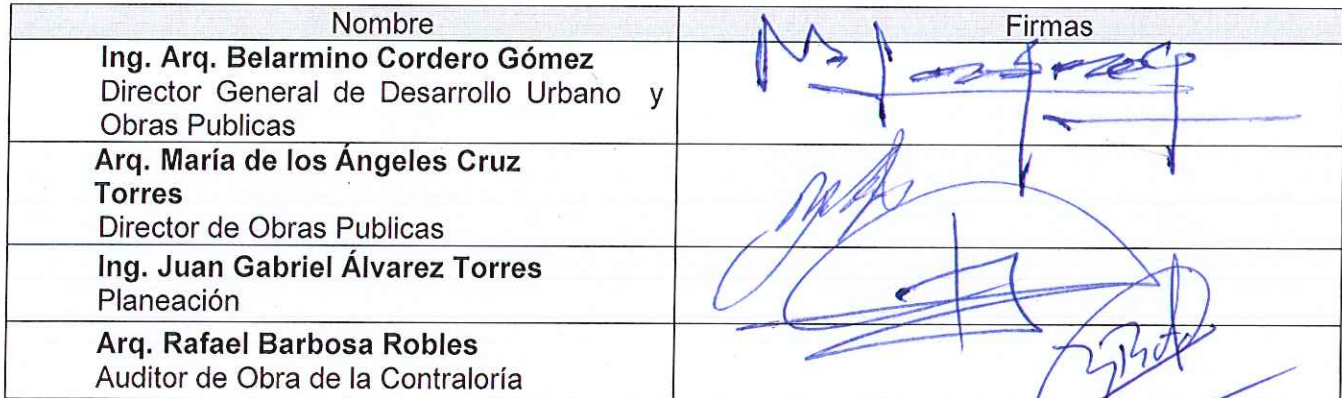 Nombre Firmas
Ing. Arq. Belarmino Cordero Gómez
Director General de Desarrollo Urbano y
Obras Publicas
Arq. María de los Ángeles Cruz
Torres
Director de Obras Publicas
Ing. Juan Gabriel Álvarez Torres
Planeación
Arq. Rafael Barbosa Robles
Auditor de Obra de la Contraloría